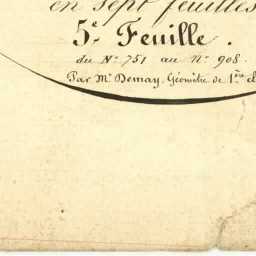 en sept feuilles
5.e Feuille.
du N.o 751 au N.o 908.
Par M.r Demay, Géomètre de 1.ère cl